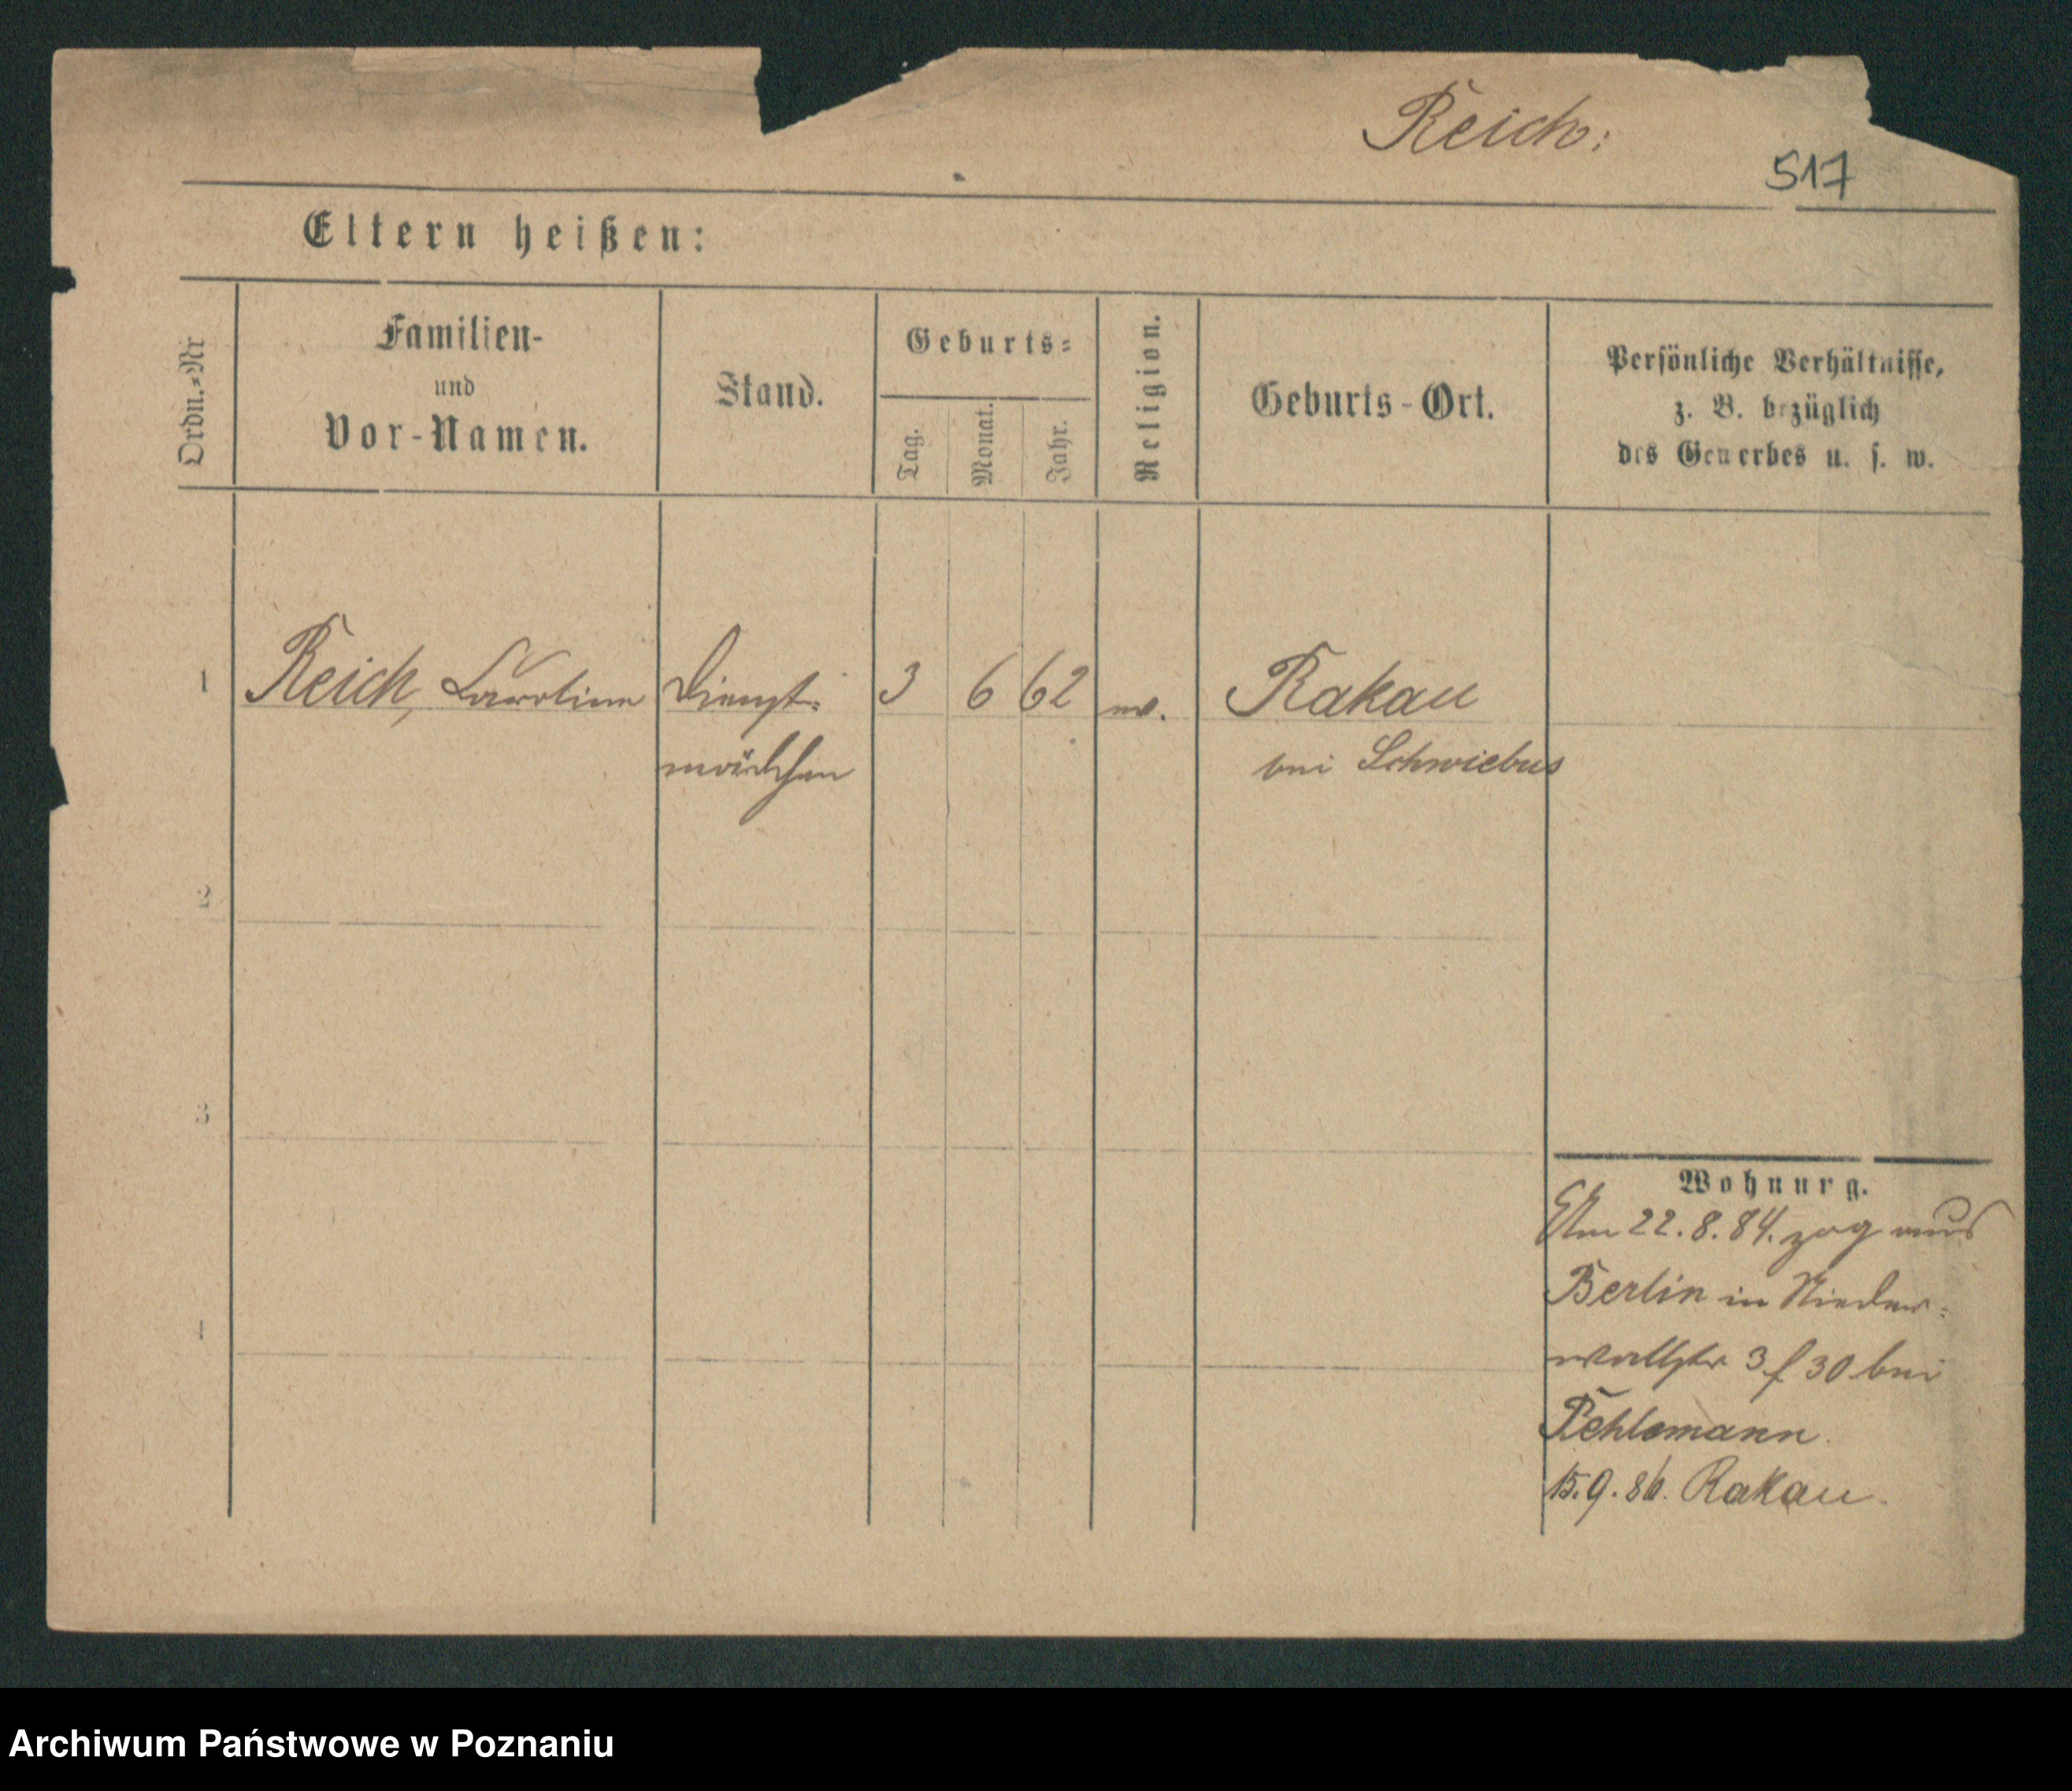 Reich:
517
Eltern heißen:
Ordn.-Nr
Familien-
und
Vor-Namen.
Stand.
Geburts-
Tag.
Monat.
Jahr.
Religion.
Geburts-Ort.
Persönliche Verhältnisse,
z. B. bezüglich
des Gewerbes u. s. w.
1 Reich, Caroline Dienst- 3 6 62 Rakau
mädchen bei Schwiebus
2
3
4
Wohnung.
Am 22.8.84. zog aus
Berlin in Nieder-
wallstr 3 f 30 bei
Fehlemann.
15.9.86. Rakau.
Archiwum Państwowe w Poznaniu